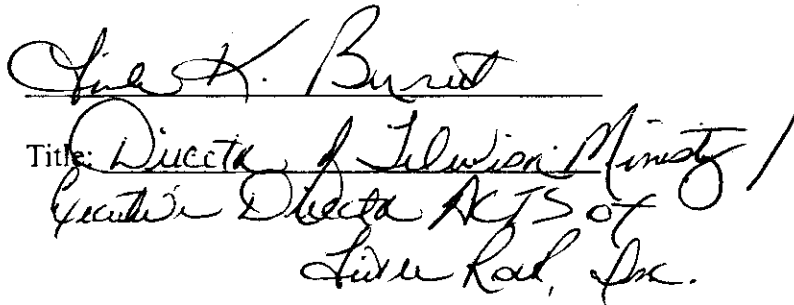 Linda K. Burnett
Title: Director of Television Ministry /
Executive Director ACTS of
Little Rock, Inc.